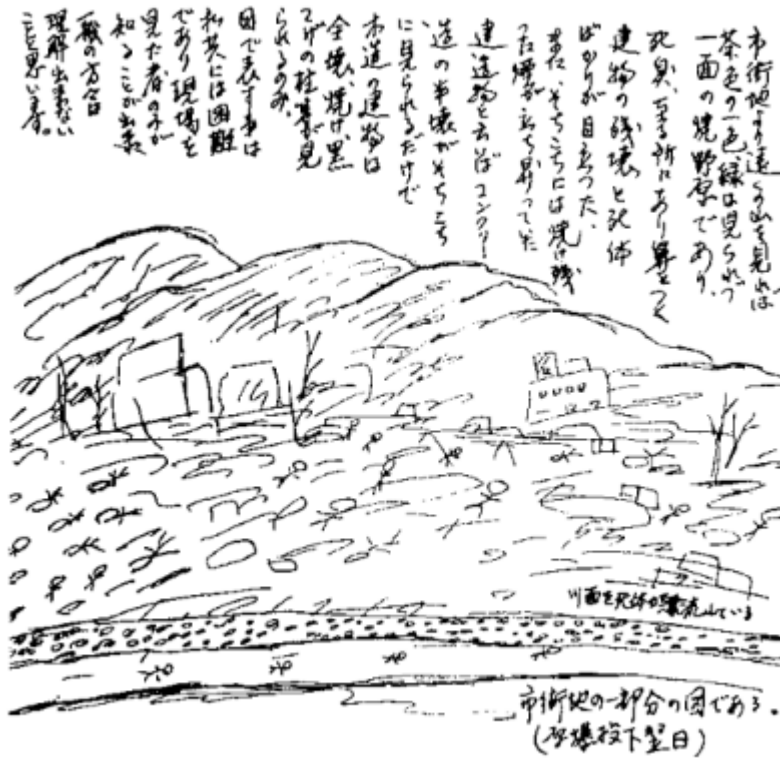 市街地より遠くの山を見れば
茶色の一色、緑は見られづ
一面の焼野原であり、
死臭、至る所にあり鼻をつく
建物の残壊と死体
ばかりが目立つた、
また、そちこちには焼け残
った煙が立ち昇っていた
建造物と云えばコンクリー
造の半壊がそちこち
に見られるだけで
木造の建物は
全壊、焼け黒
こげの柱等が見
られるのみ、
図で表す事は
私共には困難
であり現場を
見た者のみが
知ることが出来
一般の方々は
理解出来ない
ことと思います。
川面を死体が漂流している
市街地の一部分の図である。
(原爆投下翌日)